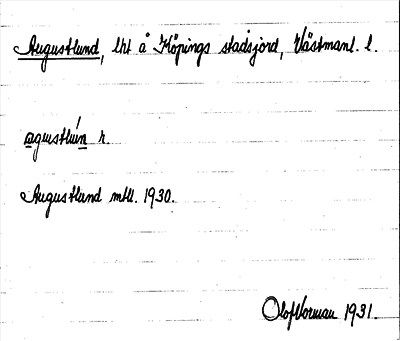 Augustlund, lht å Köpings stadsjord, Västmanl. l.
agustlu´n r.
Augustlund mtl. 1930.
Olof Norman 1931